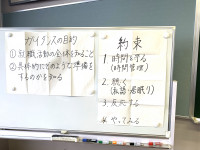 ガイダンスの目的
①就職活動の全体を知ること
②具体的にどのような準備を
するのかを知る
約束
1. 時間を守る
(時間管理)
2. 聴く
(私語・居眠り)
3. 反応する
4. やってみる